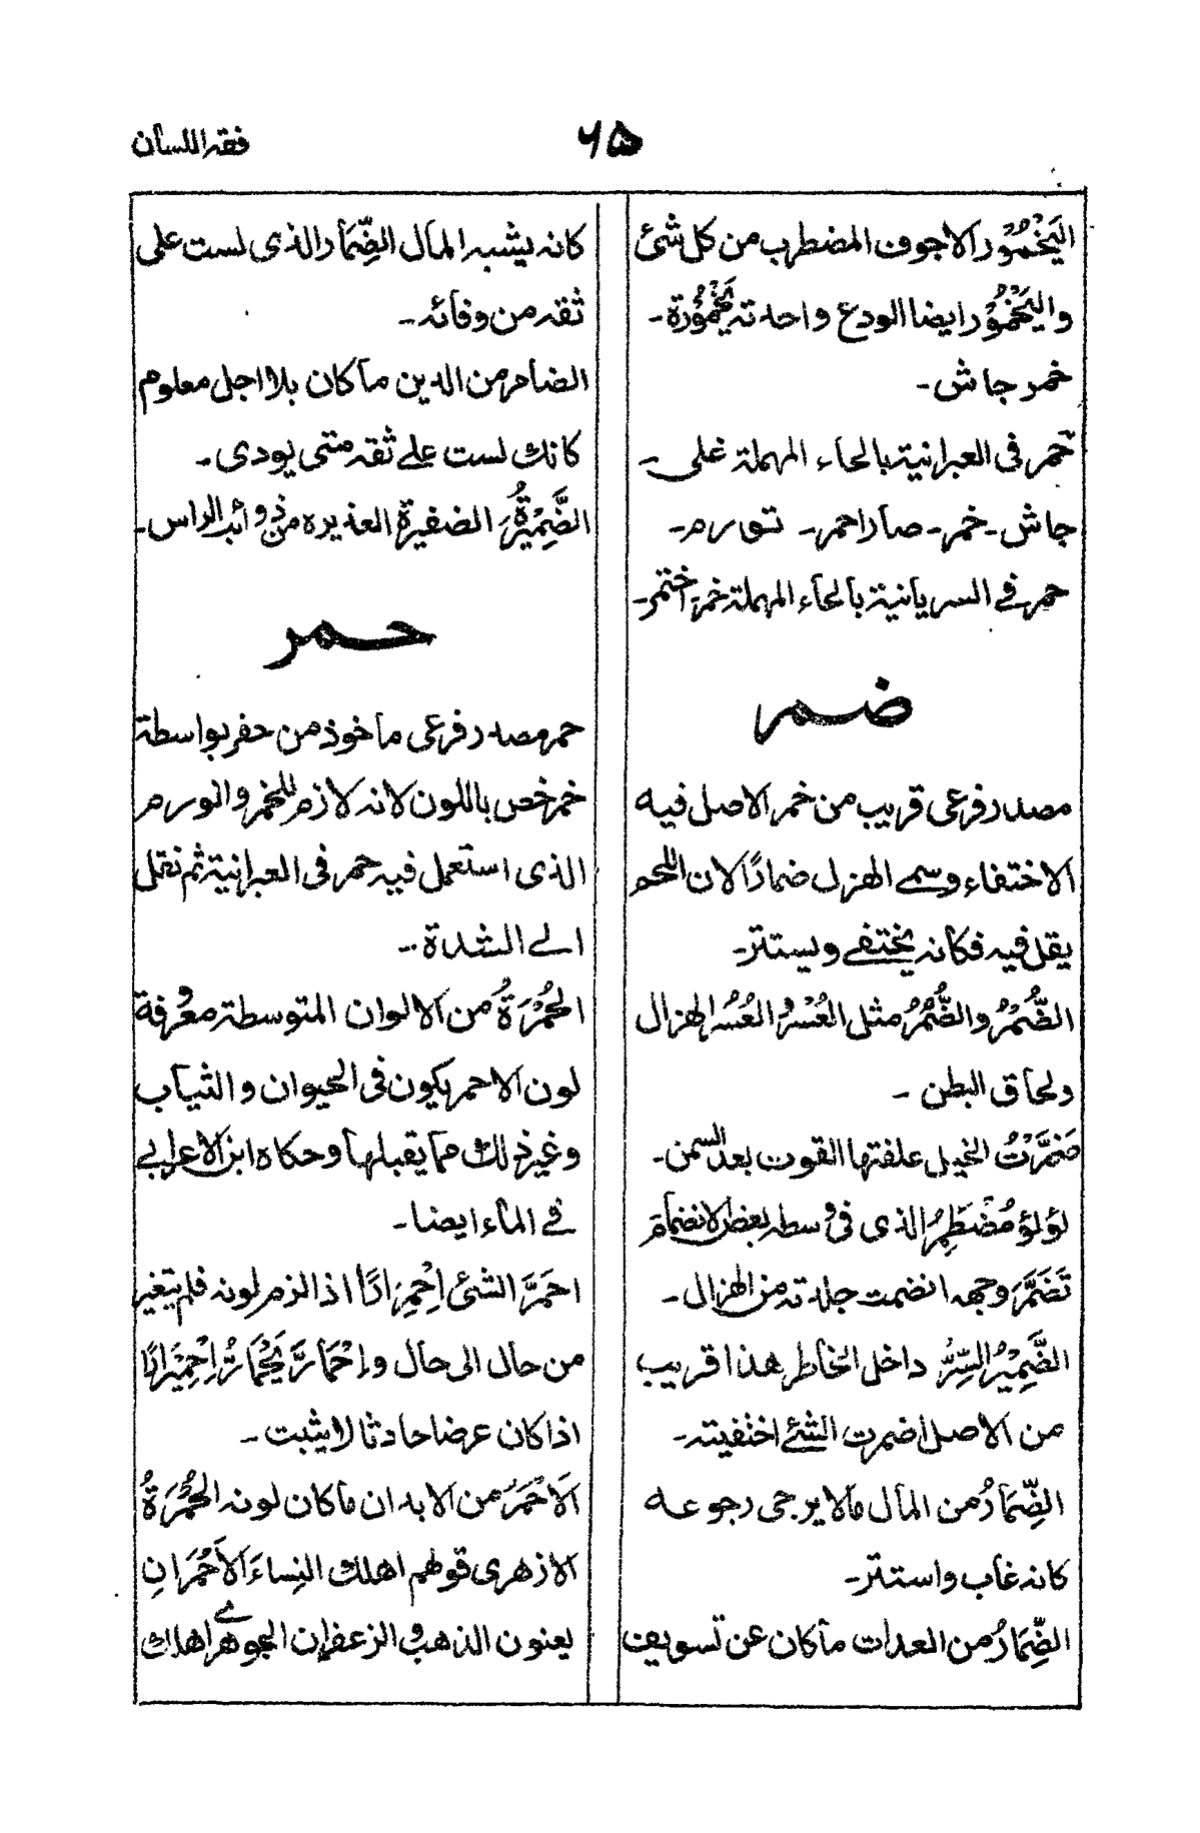 فقه اللسان
٦٥
اليَخْمُوْر الاجوف المضطرب من كل شئ
واليَخْمُوْر ايضا الودع واحدته يَخْمُوْرَة۔
خمر جاش۔
حَمر فى العبرانية بالحاء المهملة غلى۔
جاش۔ خمر۔ صار احمر۔ تورم۔
حمر فے السريانية بالحاء المهملة خمر۔ اختمر۔
ضمر
مصدر فرعى قريب من خمر الاصل فيه
الاختفاء وسمے الهزل ضمارًا لان اللحم
يقل فيه فكانه يختفے ويستتر۔
الضُّمْرُ والضُّمُرُ مثل العُسْرُ والعُسُرُ الهزال
ولحاق البطن ۔
ضَمَّرْتُ الخيل علفتها القوت بعد السمن۔
لؤلؤ مُضْطَمِرُ الذى فى وسطه بعض الانضمام
تَضَمَّرَ وجهه انضمت جلدته من الهزال۔
الضَّمِيْرُ السِّرُّ داخل الخاطر هذا قريب
من الاصل اضمرت الشئے اختفيته۔
الضِّمَارُ من المال مالا يرجى رجوعه
كانه غاب واستتر۔
الضِّمَارُ من العدات ماكان عن تسويف
كانه يشبه المال الضِّمَار الذى لست على
ثقه من وفائه۔
الضامر من الدين ماكان بلا اجل معلوم
كانك لست علے ثقه متى يودى۔
الضَّمِيْرَةُ الضفيرة الغديره من ذوائب الراس۔
حمر
حمر مصدر فرعى ماخوذ من حفر بواسطة
خمر خص باللون لانه لازم للخمر والورم
الذى استعمل فيه حمر فى العبرانية ثم نقل
الے الشدة۔
الحُمْرَةُ من الالوان المتوسطة معروفة
لون الاحمر يكون فى الحيوان والثياب
وغير ذلك مما يقبلها وحكاه ابن الاعرابے
فے الماء ايضا۔
احمَرَّ الشئ اِحْمِرَارًا اذا لزم لونه فلم يتغير
من حال الى حال واِحْمَارَّ يَحْمَارُّ اِحْمِيْرَارًا
اذا كان عرضا حادثا لا يثبت۔
اَلاَحْمَرُ من الابدان ماكان لونه الحُمْرَةُ
الازهرى قولهم اهلك النِساءَ الاَحْمَرَانِ
يعنون الذهب والزعفران الجوهرے اهلك